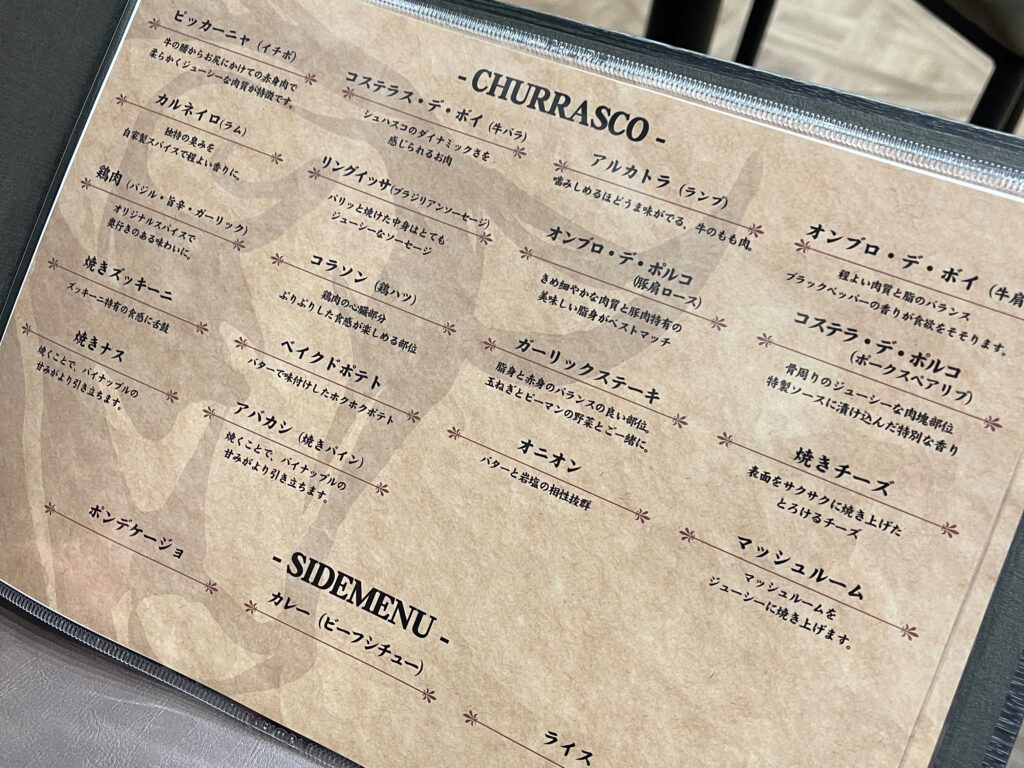 - CHURRASCO -
ピッカーニャ（イチボ）
牛の腰からお尻にかけての赤身肉で
柔らかくジューシーな肉質が特徴です。
コステラス・デ・ボイ（牛バラ）
シュハスコのダイナミックさを
感じられるお肉
アルカトラ（ランプ）
噛みしめるほどうま味がでる、牛のもも肉。
オンブロ・デ・ボイ（牛肩
程よい肉質と脂のバランス
ブラックペッパーの香りが食欲をそそります。
カルネイロ（ラム）
独特の臭みを
自家製スパイスで程よい香りに。
リングイッサ（ブラジリアンソーセージ）
パリッと焼けた中身はとても
ジューシーなソーセージ
オンブロ・デ・ポルコ
（豚肩ロース）
きめ細やかな肉質と豚肉特有の
美味しい脂身がベストマッチ
コステラ・デ・ポルコ
（ポークスペアリブ）
骨周りのジューシーな肉塊部位
特製ソースに漬け込んだ特別な香り
鶏肉（バジル・旨辛・ガーリック）
オリジナルスパイスで
奥行きのある味わいに。
コラソン（鶏ハツ）
鶏肉の心臓部分
ぷりぷりした食感が楽しめる部位
ガーリックステーキ
脂身と赤身のバランスの良い部位。
玉ねぎとピーマンの野菜とご一緒に。
焼きチーズ
表面をサクサクに焼き上げた
とろけるチーズ
焼きズッキーニ
ズッキーニ特有の食感に舌鼓
ベイクドポテト
バターで味付けしたホクホクポテト
オニオン
バターと岩塩の相性抜群
マッシュルーム
マッシュルームを
ジューシーに焼き上げます。
焼きナス
焼くことで、パイナップルの
甘みがより引き立ちます。
アバカシ（焼きパイン）
焼くことで、パイナップルの
甘みがより引き立ちます。
- SIDEMENU -
ポンデケージョ
カレー（ビーフシチュー）
ライス